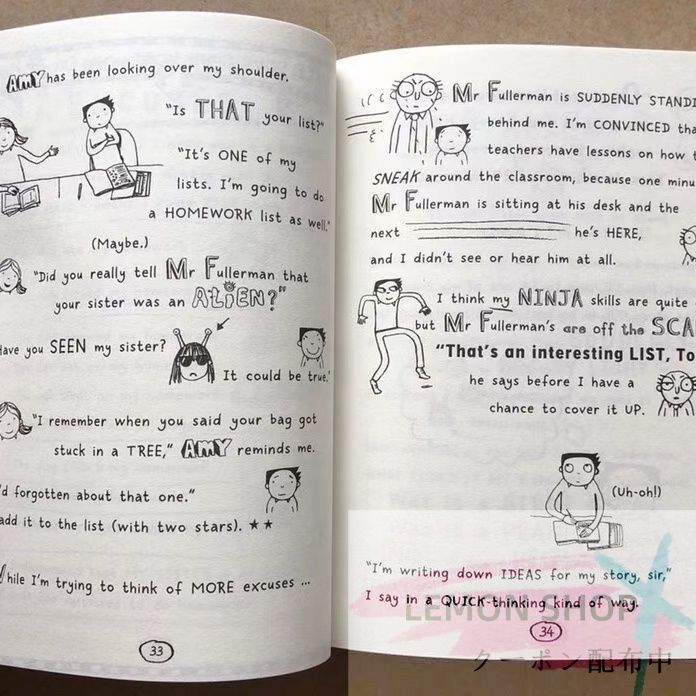 AMY has been looking over my shoulder.
"Is THAT your list?"
"It's ONE of my
lists. I'm going to do
a HOMEWORK list as well."
(Maybe.)
"Did you really tell Mr Fullerman that
your sister was an ALIEN?"
Have you SEEN my sister?
It could be true.
"I remember when you said your bag got
stuck in a TREE," AMY reminds me.
I'd forgotten about that one."
add it to the list (with two stars). ★★
While I'm trying to think of MORE excuses ...
33
Mr Fullerman is SUDDENLY STANDI
behind me. I'm CONVINCED tha
teachers have lessons on how t
SNEAK around the classroom, because one minu
Mr Fullerman is sitting at his desk and the
next he's HERE,
and I didn't see or hear him at all.
I think my NINJA skills are quite
but Mr Fullerman's are off the SCA
"That's an interesting LIST, To
he says before I have a
chance to cover it UP.
(Uh-oh!)
"I'm writing down IDEAS for my story, sir,"
I say in a QUICK-thinking kind of way.
LEMON SHOP
34
クーポン配布中